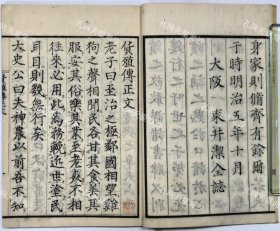 身家則脩齊有餘爾
于時明治五年十月
大阪　東井潔全誌
貨殖傳正文
老子曰至治之極鄰國相望雞
狗之聲相聞民各甘其食美其
服安其俗樂其業至老死不相
往來必用此爲務輓近世塗民
耳目則幾無行矣
太史公曰夫神農以前吾不知